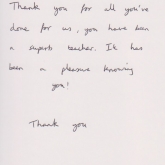 Thank you for all you've
done for us, you have been
a superb teacher. It has
been a pleasure knowing
you!
Thank you